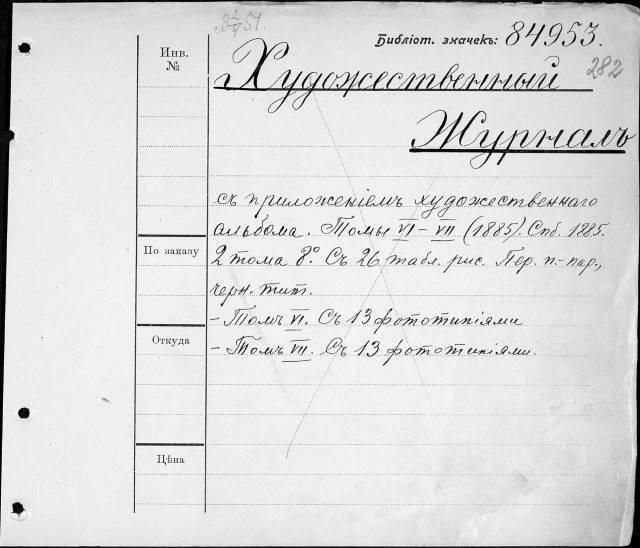 Библіот. значекъ: 84953.
282
Инв.
№
Художественный
Журналъ
съ приложеніемъ художественнаго
альбома. Томы VI – VII (1885). Спб. 1885.
По заказу
2 тома 8°. Съ 26 табл. рис. Пер. п.-кар.,
черн. тит.
– Томъ VI. Съ 13 фототипіями
Откуда
– Томъ VII. Съ 13 фототипіями.
Цѣна